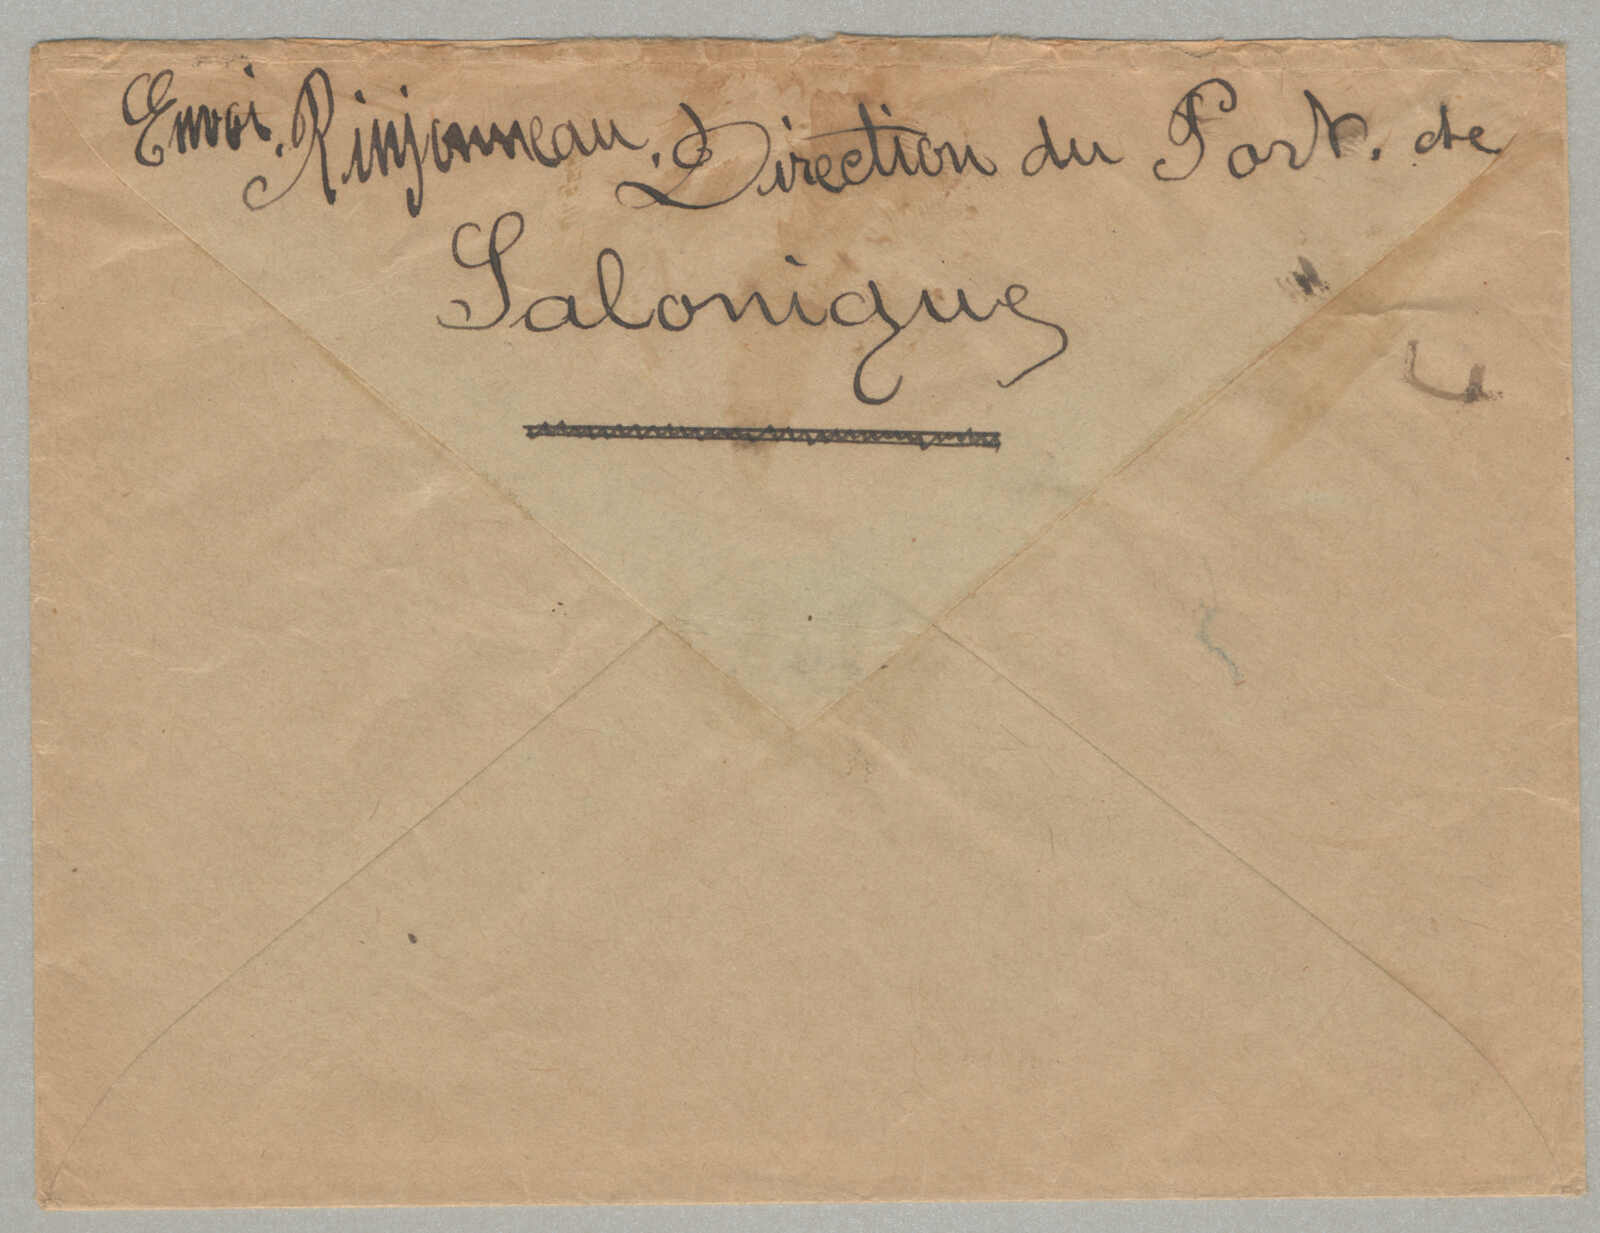 Envoi. Rinjonneau. Direction du Port. de
Salonique